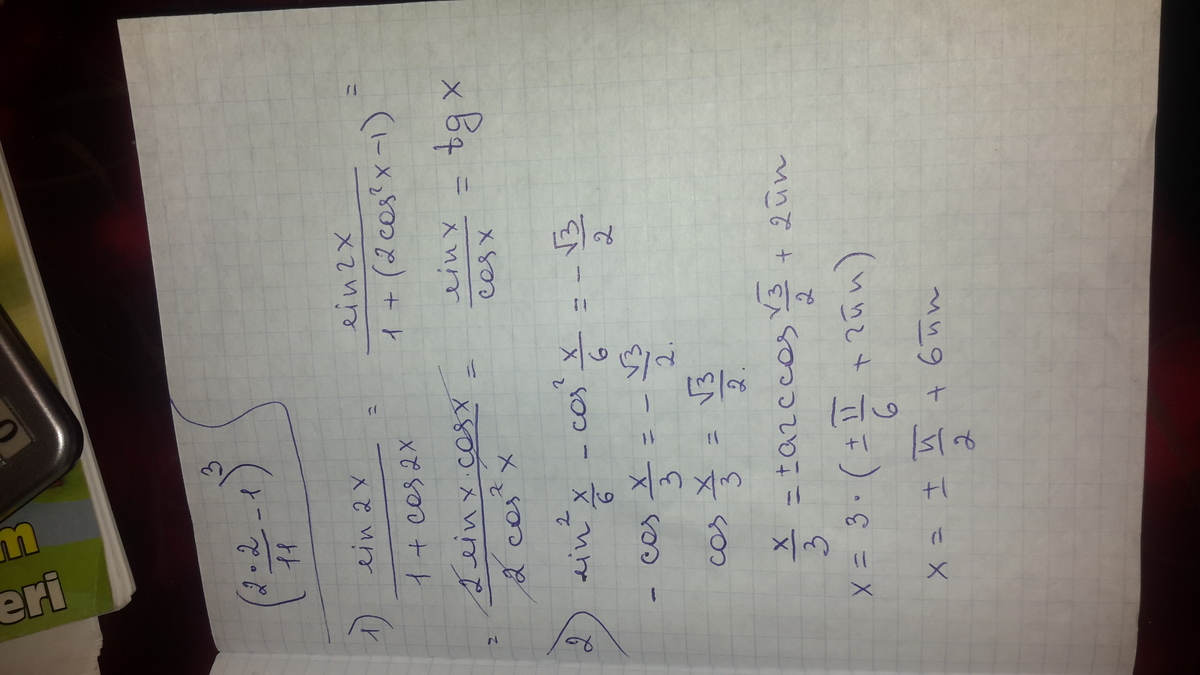 (2·2/11 - 1)³
1) sin2x/(1 + cos2x) = sin2x/(1 + (2cos²x - 1)) =
= 2sinx·cosx/(2cos²x) = sinx/cosx = tgx
2) sin² x/6 - cos² x/6 = - √3/2
- cos x/3 = - √3/2.
cos x/3 = √3/2.
x/3 = ± arccos √3/2 + 2πn
x = 3·(± π/6 + 2πn)
x = ± π/2 + 6πn
m
eri
0